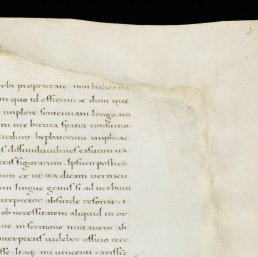 erbi proprietate non habeo in
m quo id efferam & dum quę
implere sententiam longo am
tu vix brevia spatia consumo
ccedunt hyperbatorum anfrac
ę dissimilitudines casuum va
etas figurarum. Ipsum postre
um et ut ita dicam vernacu
m linguę genus si ad verbum
interpretor absurde resonat
ob necessitatem aliquid in or
in sermone mutavero ab
interpretis videbor officio rece
sse. Itaq. mi vincenti carissi